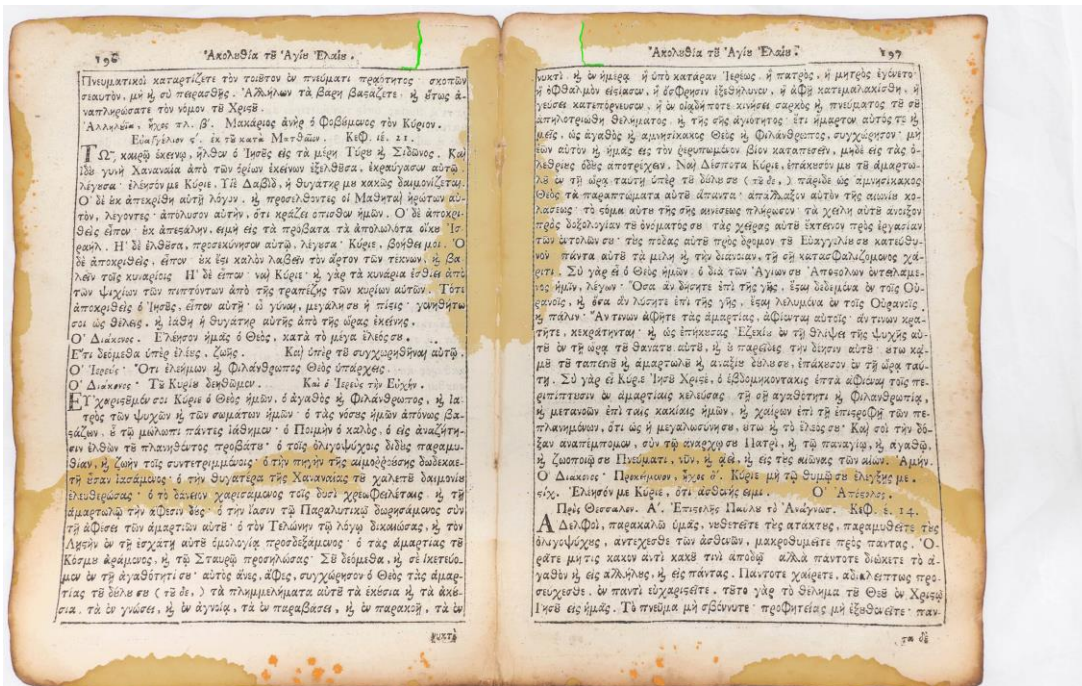 196 Ἀκολȣθία τȣ̃ Ἁγίȣ Ἐλαίȣ.
Πνευματικοὶ καταρτίζετε τὸν τοιȣ̃τον ἐν πνεύματι πραότητος· σκοπῶν
σεαυτὸν, μὴ ϗ σὺ πειρασθῇς. Ἀλλήλων τὰ βάρη βαϛάζετε. ϗ ȣ̔́τως ἀ-
ναπληρώσατε τὸν νόμον τȣ̃ Χριϛȣ̃.
Ἀλληλȣ́ϊα, ἦχος πλ. β´. Μακάριος ἀνὴρ ὁ Φοβȣ́μενος τὸν Κύριον.
Εὐαγγέλιον ϛ´. ἐκ τȣ̃ κατὰ Ματθαῖον. Κεφ. ιε. 21.
ΤΩ͂ καιρῷ ἐκείνῳ, ἦλθεν ὁ Ἰησȣ̃ς εἰς τὰ μέρη Τύρȣ ϗ Σιδῶνος. Καὶ
ἰδȣ̀ γυνὴ Χαναναία ἀπὸ τῶν ὁρίων ἐκείνων ἐξελθȣ̃σα, ἐκραύγασεν αὐτῷ.
λέγȣσα· ἐλέησόν με Κύριε, Υἱὲ Δαβὶδ, ἡ θυγάτηρ μȣ κακῶς δαιμονίζεται.
Ὁ δὲ ȣ̓κ ἀπεκρίθη αὐτῇ λόγον. ϗ προσελθόντες οἱ Μαθηταὶ ἠρώτων αὐ-
τὸν, λέγοντες· ἀπόλυσον αὐτὴν, ὅτι κράζει ὄπισθεν ἡμῶν. Ὁ δὲ ἀποκρι-
θεὶς εἶπεν· ȣ̓κ ἀπεϛάλην, εἰμὴ εἰς τὰ πρόβατα τὰ ἀπολωλότα οἴκȣ Ἰσ-
ραήλ. Ἡ δὲ ἐλθȣ̃σα, προσεκύνησεν αὐτῷ, λέγȣσα· Κύριε, βοήθει μοι. Ὁ
δὲ ἀποκριθεὶς, εἶπεν· ȣ̓κ ἔϛι καλὸν λαβεῖν τὸν ἄρτον τῶν τέκνων, ϗ βα-
λεῖν τοῖς κυναρίοις. Ἡ δὲ εἶπεν· ναὶ Κύριε· ϗ γὰρ τὰ κυνάρια ἐσθίει ἀπὸ
τῶν ψιχίων τῶν πιπτόντων ἀπὸ τῆς τραπέζης τῶν κυρίων αὐτῶν. Τότε
ἀποκριθεὶς ὁ Ἰησȣ̃ς, εἶπεν αὐτῇ· ὦ γύναι, μεγάλη σȣ ἡ πίϛις· γενηθήτω
σοι ὡς θέλεις. ϗ ἰάθη ἡ θυγάτηρ αὐτῆς ἀπὸ τῆς ὥρας ἐκείνης.
Ὁ Διάκονος. Ἐλέησον ἡμᾶς ὁ Θεὸς, κατὰ τὸ μέγα ἔλεός σȣ.
Ἔτι δεόμεθα ὑπὲρ ἐλέȣς, ζωῆς. Καὶ ὑπὲρ τȣ̃ συγχωρηθῆναι αὐτῷ.
Ὁ Ἱερεύς· Ὅτι ἐλεήμων ϗ Φιλάνθρωπος Θεὸς ὑπάρχεις.
Ὁ Διάκονος· Τȣ̃ Κυρίȣ δεηθῶμεν. Καὶ ὁ Ἱερεὺς τὴν Εὐχήν.
ΕΥ̓χαριϛȣ̃μέν σοι Κύριε ὁ Θεὸς ἡμῶν, ὁ ἀγαθὸς ϗ Φιλάνθρωπος, ϗ Ἰα-
τρὸς τῶν ψυχῶν ϗ τῶν σωμάτων ἡμῶν· ὁ τὰς νόσȣς ἡμῶν ἀπόνως βα-
ϛάζων, ȣ̔͂ τῷ μώλωπι πάντες ἰάθημεν· ὁ Ποιμὴν ὁ καλὸς, ὁ εἰς ἀναζήτη-
σιν ἐλθὼν τȣ̃ πλανηθέντος προβάτȣ· ὁ τοῖς ὀλιγοψύχοις διδȣ̀ς παραμυ-
θίαν, ϗ ζωὴν τοῖς συντετριμμένοις· ὁ τὴν πηγὴν τῆς αἱμορροȣ́σης δωδεκαε-
τῆ ȣ̓͂σαν ἰασάμενος· ὁ τὴν θυγατέρα τῆς Χαναναίας τȣ̃ χαλεπȣ̃ δαιμονίȣ
ἐλευθερώσας· ὁ τὸ δάνειον χαρισάμενος τοῖς δυσὶ χρεωφειλέταις, ϗ τῇ
ἁμαρτωλῷ τὴν ἄφεσιν δȣ́ς· ὁ τὴν ἴασιν τῷ Παραλυτικῷ δωρησάμενος σὺν
τῇ ἀφέσει τῶν ἁμαρτιῶν αὐτȣ̃· ὁ τὸν Τελώνην τῷ λόγῳ δικαιώσας, ϗ τὸν
Λῃϛὴν ἐν τῇ ἐσχάτῃ αὐτȣ̃ ὁμολογίᾳ προσδεξάμενος· ὁ τὰς ἁμαρτίας τȣ̃
Κόσμȣ ἀράμενος, ϗ τῷ Σταυρῷ προσηλώσας· Σȣ̃ δεόμεθα, ϗ σὲ ἱκετεύο-
μεν ἐν τῇ ἀγαθότητί σȣ· αὐτὸς ἄνες, ἄφες, συγχώρησον ὁ Θεὸς τὰς ἁμαρ-
τίας τȣ̃ δȣ́λȣ σȣ (τȣ̃ δε, ) τὰ πλημμελήματα αὐτȣ̃ τὰ ἑκȣ́σια ϗ τὰ ἀκȣ́-
σια, τὰ ἐν γνώσει, ϗ ἐν ἀγνοίᾳ, τὰ ἐν παραβάσει, ϗ ἐν παρακοῇ, τὰ ἐν
νυκτὶ
Ἀκολȣθία τȣ̃ Ἁγίȣ Ἐλαίȣ. 197
νυκτὶ, ϗ ἐν ἡμέρᾳ· ἢ ὑπὸ κατάραν Ἱερέως, ἢ πατρὸς, ἢ μητρὸς ἐγένετο·
ἢ ὀφθαλμὸν εἱϛίασεν, ἢ ὄσφρησιν ἐξεθήλυνεν, ἢ ἀφῇ κατεμαλακίσθη, ἢ
γεύσει κατεπόρνευσεν, ἢ ἐν οἱᾳδήποτε κινήσει σαρκὸς ϗ πνεύματος τȣ̃ σȣ̃
ἀπηλοτριώθη θελήματος, ϗ τῆς σῆς ἁγιότητος· ἔτι ἥμαρτεν αὐτός τε ϗ
ἡμεῖς, ὡς ἀγαθὸς ϗ ἀμνησίκακος Θεὸς ϗ Φιλάνθρωπος, συγχώρησον· μὴ
ἐῶν αὐτὸν ϗ ἡμᾶς εἰς τὸν ῥερυπωμένον βίον καταπεσεῖν, μηδὲ εἰς τὰς ὀ-
λεθρίȣς ὁδȣ̀ς ἀποτρέχειν. Ναὶ Δέσποτα Κύριε, ἐπάκȣσόν μȣ τȣ̃ ἁμαρτω-
λȣ̃ ἐν τῇ ὥρᾳ ταύτῃ ὑπὲρ τȣ̃ δȣ́λȣ σȣ (τȣ̃ δε, ) πάριδε ὡς ἀμνησίκακος
Θεὸς τὰ παραπτώματα αὐτȣ̃ ἅπαντα· ἀπάλλαξον αὐτὸν τῆς αἰωνίȣ κο-
λάσεως· τὸ ϛόμα αὐτȣ̃ τῆς σῆς αἰνέσεως πλήρωσον· τὰ χείλη αὐτȣ̃ ἄνοιξον
πρὸς δοξολογίαν τȣ̃ ὀνόματός σȣ· τὰς χεῖρας αὐτȣ̃ ἔκτεινον πρὸς ἐργασίαν
τῶν ἐντολῶν σȣ· τὰς πόδας αὐτȣ̃ πρὸς δρόμον τȣ̃ Εὐαγγελίȣ σȣ κατεύθυ-
νον· πάντα αὐτȣ̃ τὰ μέλη ϗ τὴν διάνοιαν, τῇ σῇ κατασφαλιζόμενος χά-
ριτι. Σὺ γὰρ εἶ ὁ Θεὸς ἡμῶν, ὁ διὰ τῶν Ἁγίων σȣ Ἀποϛόλων ἐντειλάμε-
νος ἡμῖν, λέγων· Ὅσα ἂν δήσητε ἐπὶ τῆς γῆς, ἔϛαι δεδεμένα ἐν τοῖς Οὐ-
ρανοῖς, ϗ ὅσα ἂν λύσητε ἐπὶ τῆς γῆς, ἔϛαι λελυμένα ἐν τοῖς Οὐρανοῖς.
ϗ πάλιν· Ἄν τινων ἀφῆτε τὰς ἁμαρτίας, ἀφίενται αὐτοῖς· ἄν τινων κρα-
τῆτε, κεκράτηνται· ϗ ὡς ἐπήκȣσας Ἐζεκίȣ ἐν τῇ θλίψει τῆς ψυχῆς αὐ-
τȣ̃ ἐν τῇ ὥρᾳ τȣ̃ θανάτȣ αὐτȣ̃, ϗ ȣ̓ παρεῖδες τὴν δέησιν αὐτȣ̃· ȣ̔́τω κᾀ-
μȣ̃ τȣ̃ ταπεινȣ̃ ϗ ἁμαρτωλȣ̃ ϗ ἀναξίȣ δȣ́λȣ σȣ, ἐπάκȣσον ἐν τῇ ὥρᾳ ταύ-
τῃ. Σὺ γὰρ εἶ Κύριε Ἰησȣ̃ Χριϛὲ, ὁ ἑβδομηκοντάκις ἑπτὰ ἀφιέναι τοῖς πε-
ριπίπτȣσιν ἐν ἁμαρτίαις κελεύσας τῇ σῇ ἀγαθότητι ϗ Φιλανθρωπίᾳ,
ϗ μετανοῶν ἐπὶ ταῖς κακίαις ἡμῶν, ϗ χαίρων ἐπὶ τῇ ἐπιϛροφῇ τῶν πε-
πλανημένων, ὅτι ὡς ἡ μεγαλωσύνη σȣ, ȣ̔́τω ϗ τὸ ἔλεός σȣ· Καὶ σοὶ τὴν δό-
ξαν ἀναπέμπομεν, σὺν τῷ ἀνάρχῳ σȣ Πατρὶ, ϗ τῷ παναγίῳ, ϗ ἀγαθῷ,
ϗ ζωοποιῷ σȣ Πνεύματι, νῦν, ϗ ἀεὶ, ϗ εἰς τȣ̀ς αἰῶνας τῶν αἰών. Ἀμήν.
Ὁ Διάκονος· Προκείμενον, ἦχος δ´. Κύριε μὴ τῷ θυμῷ σȣ ἐλέγξῃς με.
ϛίχ. Ἐλέησόν με Κύριε, ὅτι ἀσθενής εἰμι. Ὁ Ἀπόϛολος.
Πρὸς Θεσσαλον. Α´. Ἐπιϛολῆς Παύλȣ τὸ Ἀνάγνωσ. Κεφ. ἐ. 14.
ΑΔελφοὶ, παρακαλῶ ὑμᾶς, νȣθετεῖτε τȣ̀ς ἀτάκτȣς, παραμυθεῖτε τȣ̀ς
ὀλιγοψύχȣς, ἀντέχεσθε τῶν ἀσθενῶν, μακροθυμεῖτε πρὸς πάντας. Ὁ-
ρᾶτε μήτις κακὸν ἀντὶ κακȣ̃ τινὶ ἀποδῷ· ἀλλὰ πάντοτε διώκετε τὸ ἀ-
γαθὸν ϗ εἰς ἀλλήλȣς, ϗ εἰς πάντας. Πάντοτε χαίρετε, ἀδιαλείπτως προ-
σεύχεσθε. ἐν παντὶ εὐχαριϛεῖτε, τȣ̃το γὰρ τὸ θέλημα τȣ̃ Θεȣ̃ ἐν Χριϛῷ
Ἰησȣ̃ εἰς ἡμᾶς. Τὸ πνεῦμα μὴ σβέννυτε· προφητείας μὴ ἐξȣθενεῖτε· παν-
τα δὲ